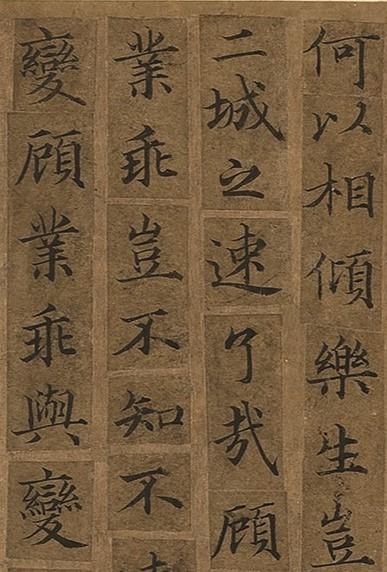 何以相傾樂生豈
二城之速了哉顧
業乖豈不知不
變顧業乖與變